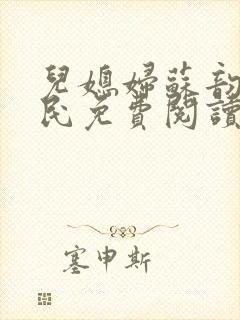 兒媳婦蘇韵
民免費閱讀
塞申斯